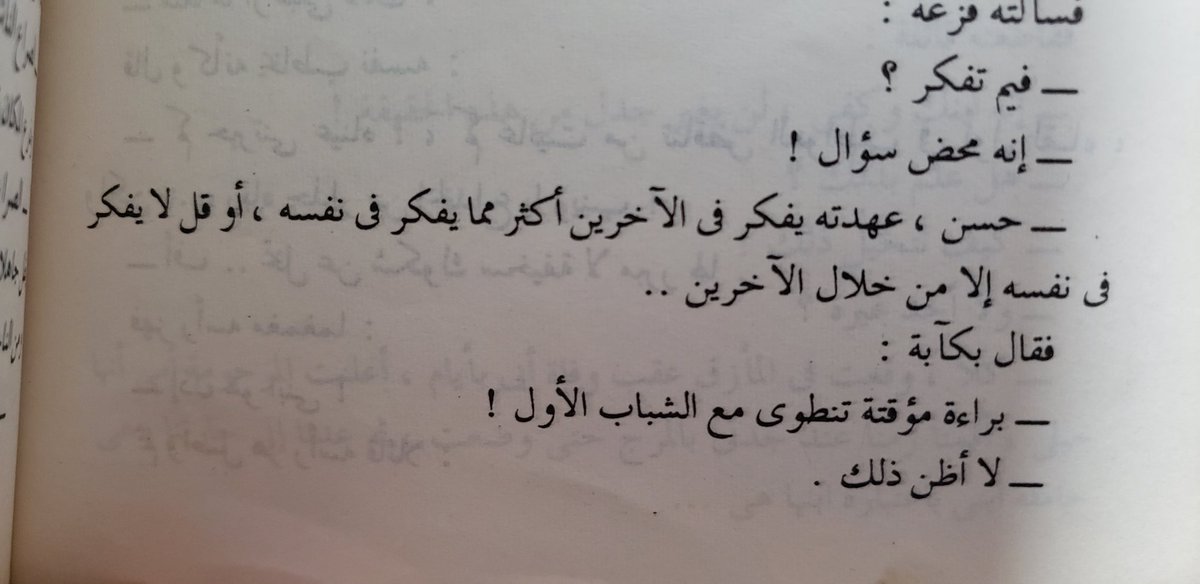 فسألته فزعه :
— فيم تفكر ؟
— إنه محض سؤال !
— حسن ، عهدته يفكر فى الآخرين أكثر مما يفكر فى نفسه ، أو قل لا يفكر
فى نفسه إلا من خلال الآخرين ..
فقال بكآبة :
— براءة مؤقتة تنطوى مع الشباب الأول !
— لا أظن ذلك .